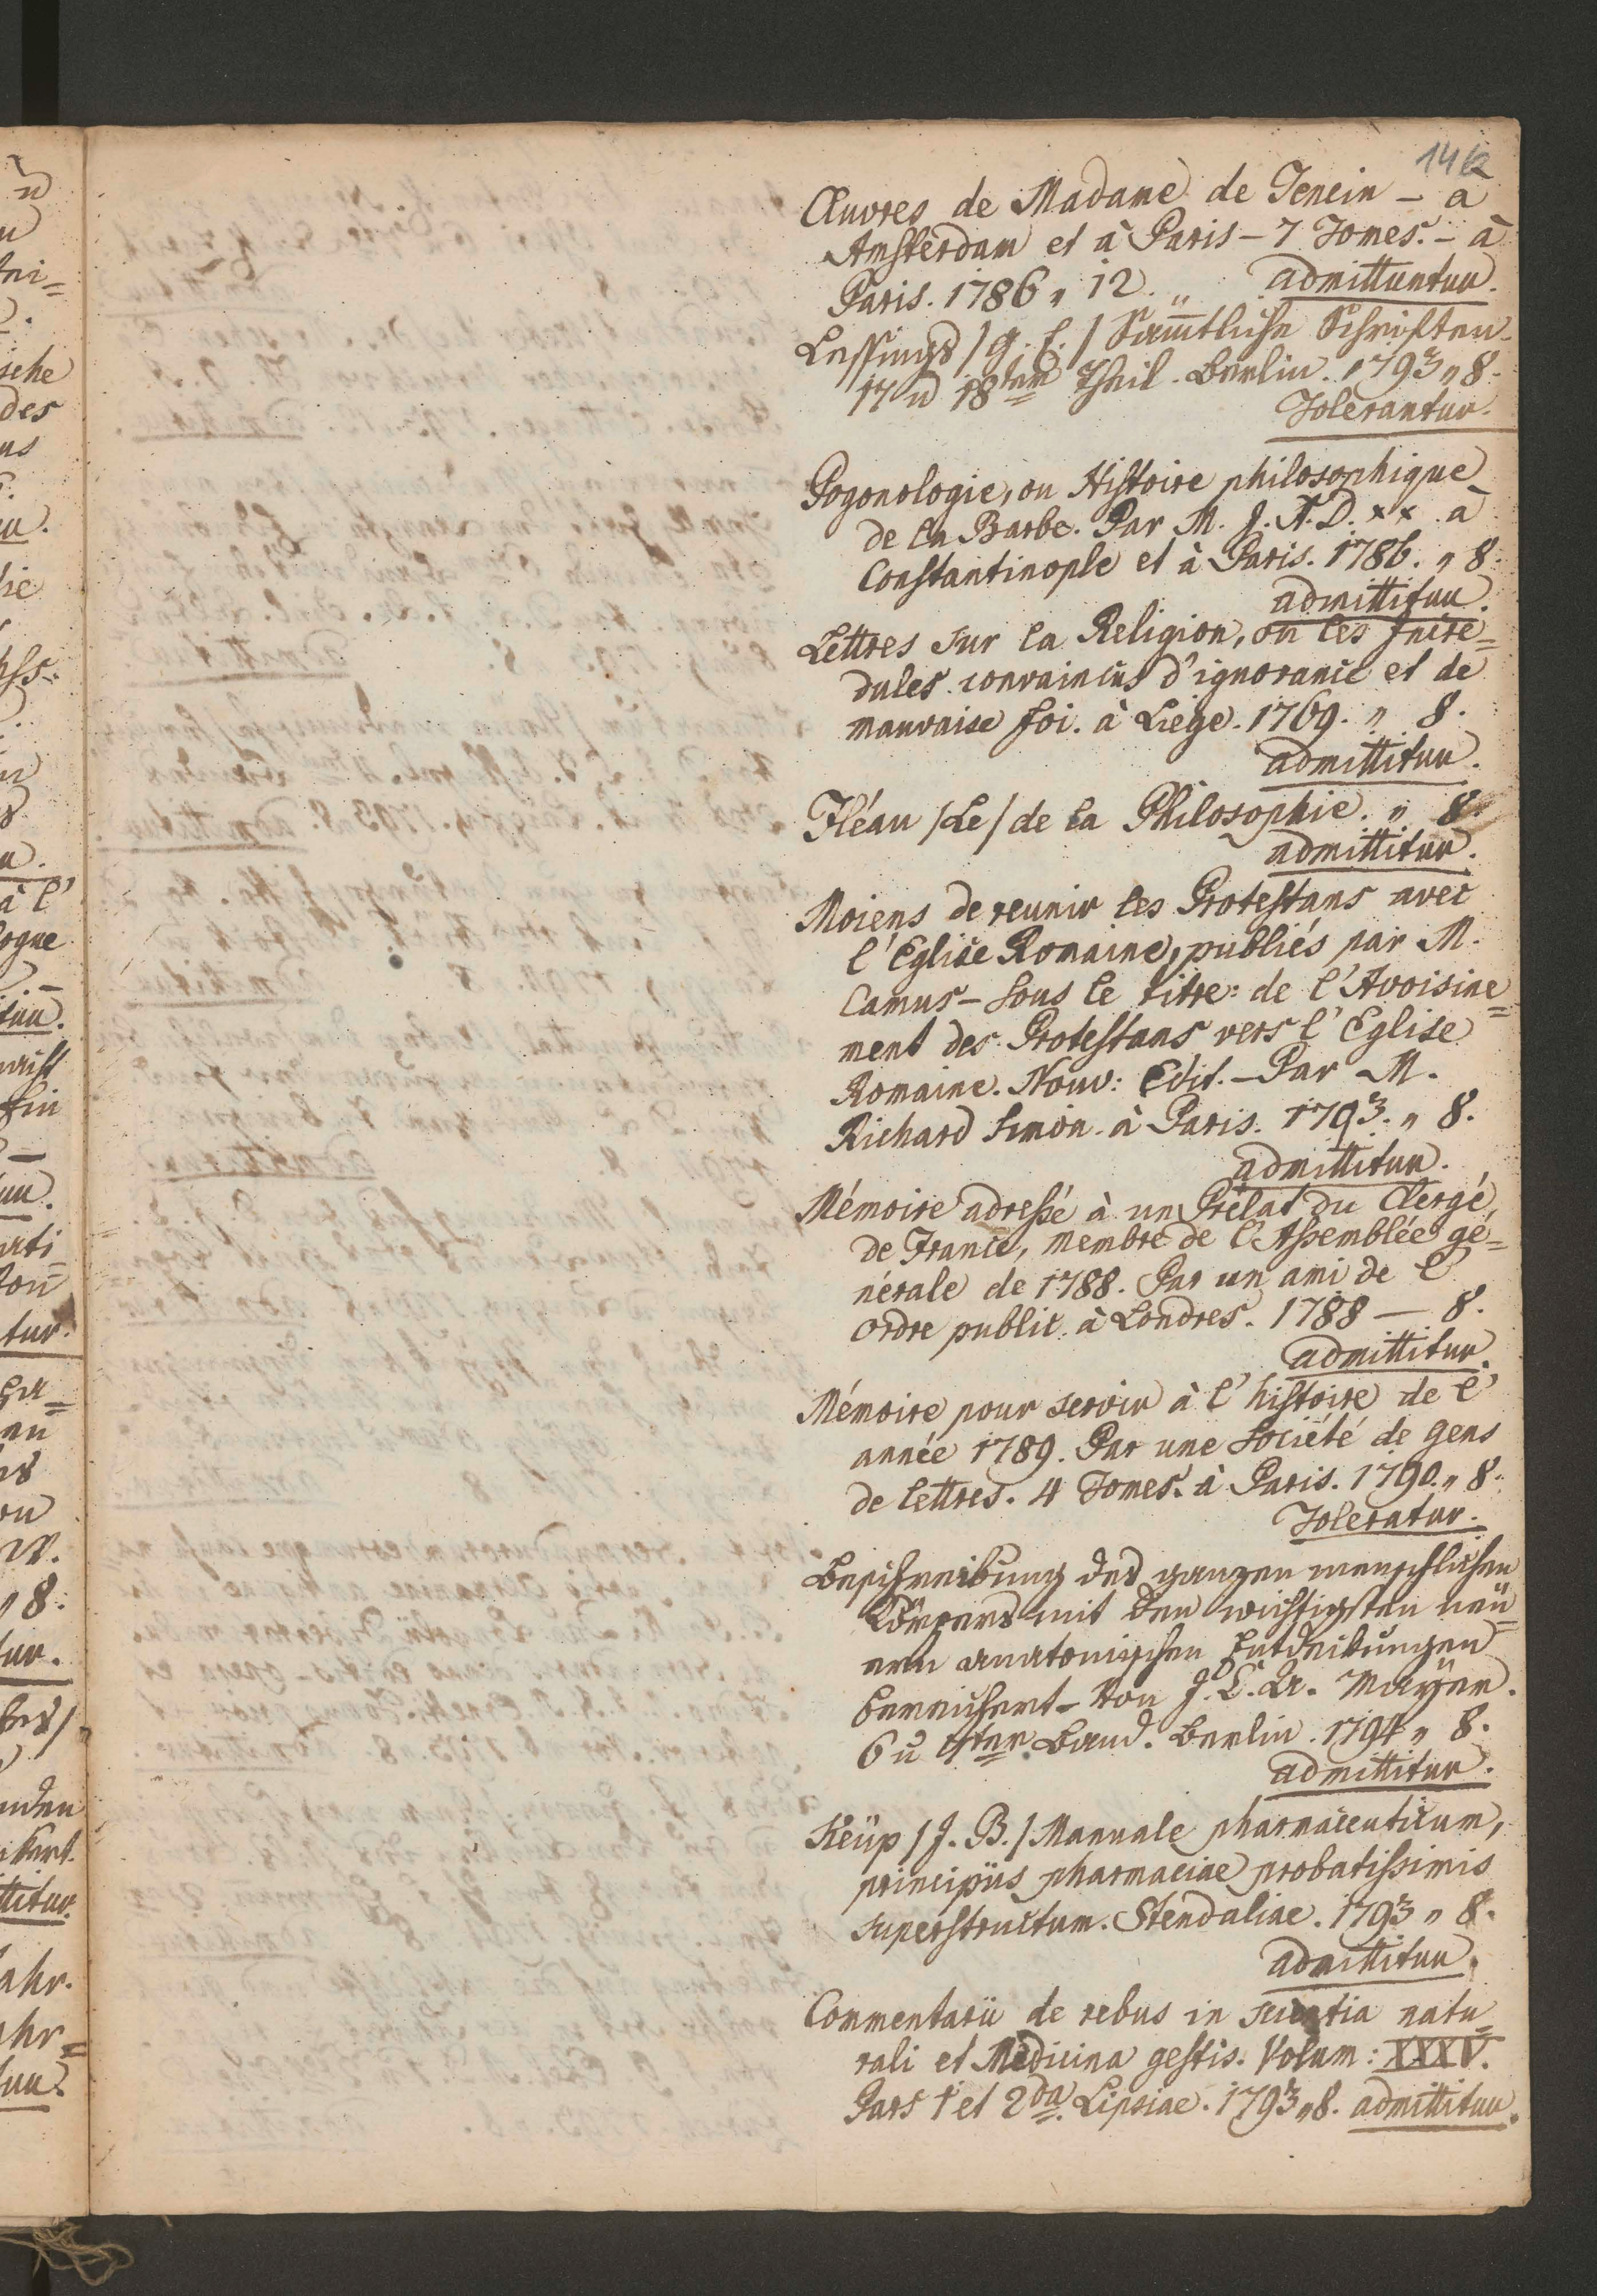 1412
Œuvres de Madame de Tenein – à
Amsterdam et à Paris – 7 Tomes. – à
Paris. 1786 „ 12. „ admittuntur.
Lessings /G. E./ Sämtliche Schriften.
17 u 18ter Theil. Berlin. 1793 „ 8.
Tolerantur.
Pogonologie, ou Histoire philosophique
de la Barbe. Par M. J. A. D. ×× à
Constantinople et à Paris. 1786. „ 8.
admittitur.
Lettres sur la Religion, ou les Incré=
dules convaincus d'ignorance et de
mauvaise foi. à Liege. 1769. „ 8.
admittitur.
Fléau /Le/ de la Philosophie. „ 8.
admittitur.
Moiens de reunir les Protestans avec
l'Eglise Romaine, publiés par M.
Camus – sous le titre: de l'Avoisine=
ment des Protestans vers l'Eglise
Romaine. Nouv: Edit. – Par M.
Richard Simon. à Paris. 1793. „ 8.
admittitur.
Mémoire adressé à un Prélat du Clergé,
de France, membre de l'Assemblée gé=
nérale de 1788. Par un ami de l'
ordre public. à Londres. 1788 — 8.
admittitur.
Mémoire pour servir à l'histoire de l'
année 1789. Par une Société de gens
de lettres. 4 Tomes. à Paris. 1790. „ 8.
Toleratur.
Beschreibung des ganzen menschlichen
Körpers mit den wichtigsten neü=
ern anatomischen Entdeckungen
bereichert – von J. C. A. Mayer.
6 u 7ter Band. Berlin. 1794 „ 8.
admittitur.
Keüp /J. B./ Manuale pharmaceuticum,
principiis pharmaciae probatissimis
superstructum. Stendaliae. 1793 „ 8.
admittitur.
Commentarii de rebus in scientia natu=
rali et Medicina gestis. Volum: XXXV.
Pars 1 et 2da. Lipsiae. 1793 „ 8. admittitur.